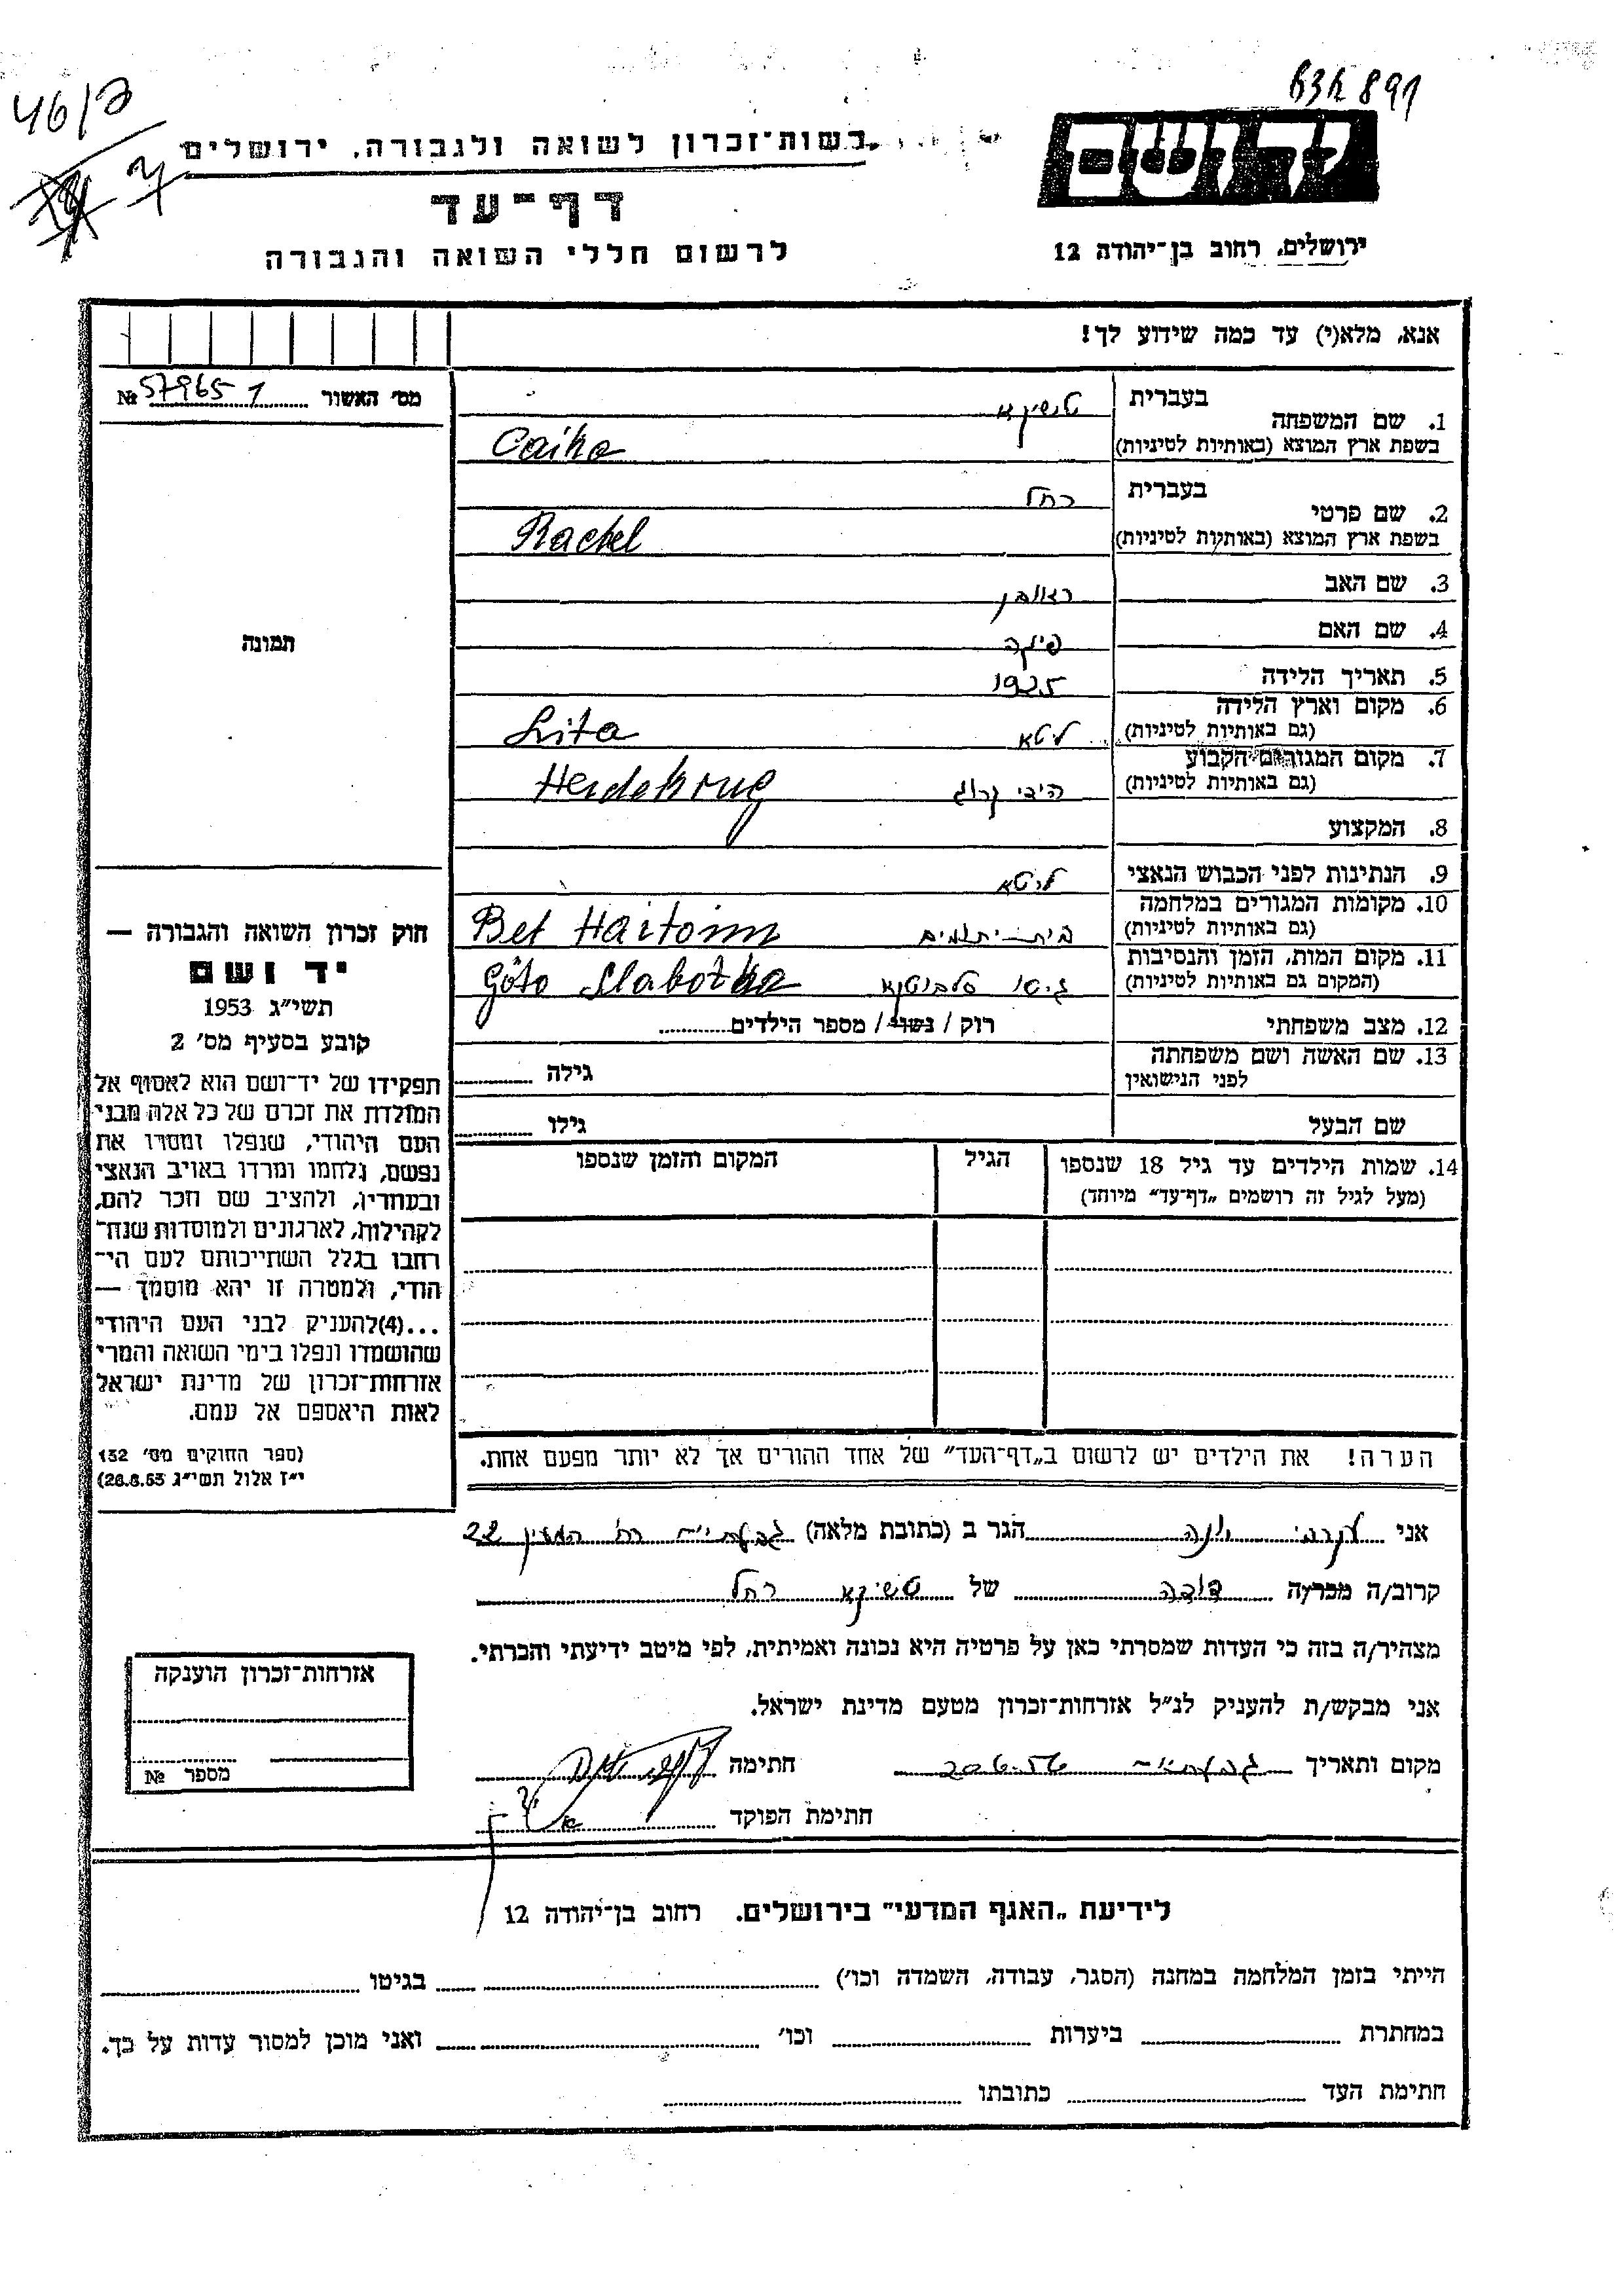 46/ק
רשות־זכרון לשואה ולגבורה, ירושלים
דף־עד
לרשום חללי השואה והגבורה
ירושלים, רחוב בן־יהודה 12
אנא, מלא(י) עד כמה שידוע לך!
מס׳ האשור № 57965
1. שם המשפחה
בעברית
בשפת ארץ המוצא (באותיות לטיניות) Caika
2. שם פרטי
בעברית רחל
בשפת ארץ המוצא (באותיות לטיניות) Rachel
3. שם האב ראובן
4. שם האם
5. תאריך הלידה 1925
6. מקום וארץ הלידה
(גם באותיות לטיניות) ליטא Lita
7. מקום המגורים הקבוע
(גם באותיות לטיניות) היידי קרוג Heidekrug
8. המקצוע
9. הנתינות לפני הכבוש הנאצי ליטא
10. מקומות המגורים במלחמה
(גם באותיות לטיניות) בית יתומים Bet Haitomim
11. מקום המות, הזמן והנסיבות
(המקום גם באותיות לטיניות) גיטו סלבוטקא Göto Slabotka
12. מצב משפחתי רוק / נשוי / מספר הילדים
13. שם האשה ושם משפחתה
לפני הנישואין גילה
שם הבעל גילו
14. שמות הילדים עד גיל 18 שנספו
(מעל לגיל זה רושמים „דף־עד״ מיוחד)
הגיל
המקום והזמן שנספו
הערה! את הילדים יש לרשום ב„דף־העד״ של אחד ההורים אך לא יותר מפעם אחת.
תמונה
חוק זכרון השואה והגבורה —
יד ושם
תשי״ג 1953
קובע בסעיף מס׳ 2
תפקידו של יד־ושם הוא לאסוף אל
המולדת את זכרם של כל אלה מבני
העם היהודי, שנפלו ומסרו את
נפשם, נלחמו ומרדו באויב הנאצי
ובעוזריו, ולהציב שם וזכר להם,
לקהילות, לארגונים ולמוסדות שנח־
רבו בגלל השתייכותם לעם הי־
הודי, ולמטרה זו יהא מוסמך —
...(4)להעניק לבני העם היהודי
שהושמדו ונפלו בימי השואה והמרי
אזרחות־זכרון של מדינת ישראל
לאות היאספם אל עמם.
(ספר החוקים מס׳ 132
י״ז אלול תשי״ג 28.8.53)
אני הגר ב (כתובת מלאה) גבעתיים רח׳ 22
קרוב/ה מכר/ה דודה של טשיקא רחל
מצהיר/ה בזה כי העדות שמסרתי כאן על פרטיה היא נכונה ואמיתית, לפי מיטב ידיעתי והכרתי.
אני מבקש/ת להעניק לנ״ל אזרחות־זכרון מטעם מדינת ישראל.
מקום ותאריך גבעתיים 20.6.56 חתימה
חתימת הפוקד
אזרחות־זכרון הוענקה
מספר №
לידיעת „האגף המדעי״ בירושלים, רחוב בן־יהודה 12
הייתי בזמן המלחמה במחנה (הסגר, עבודה, השמדה וכו׳) בגיטו
במחתרת ביערות וכו׳ ואני מוכן למסור עדות על כך.
חתימת העד כתובתו